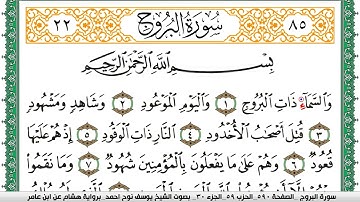 ٨٥ سُورَةُ الْبُرُوجِ ٢٢
بِسْمِ اللَّهِ الرَّحْمَٰنِ الرَّحِيمِ
وَالسَّمَاءِ ذَاتِ الْبُرُوجِ ١ وَالْيَوْمِ الْمَوْعُودِ ٢ وَشَاهِدٍ وَمَشْهُودٍ
٣ قُتِلَ أَصْحَابُ الْأُخْدُودِ ٤ النَّارِ ذَاتِ الْوَقُودِ ٥ إِذْ هُمْ عَلَيْهَا
قُعُودٌ ٦ وَهُمْ عَلَىٰ مَا يَفْعَلُونَ بِالْمُؤْمِنِينَ شُهُودٌ ٧ وَمَا نَقَمُوا
سورة البروج _الصفحة ٥٩٠ _الحزب ٥٩ _الجزء ٣٠_ بصوت الشيخ يوسف نوح احمد برواية هشام عن ابن عامر